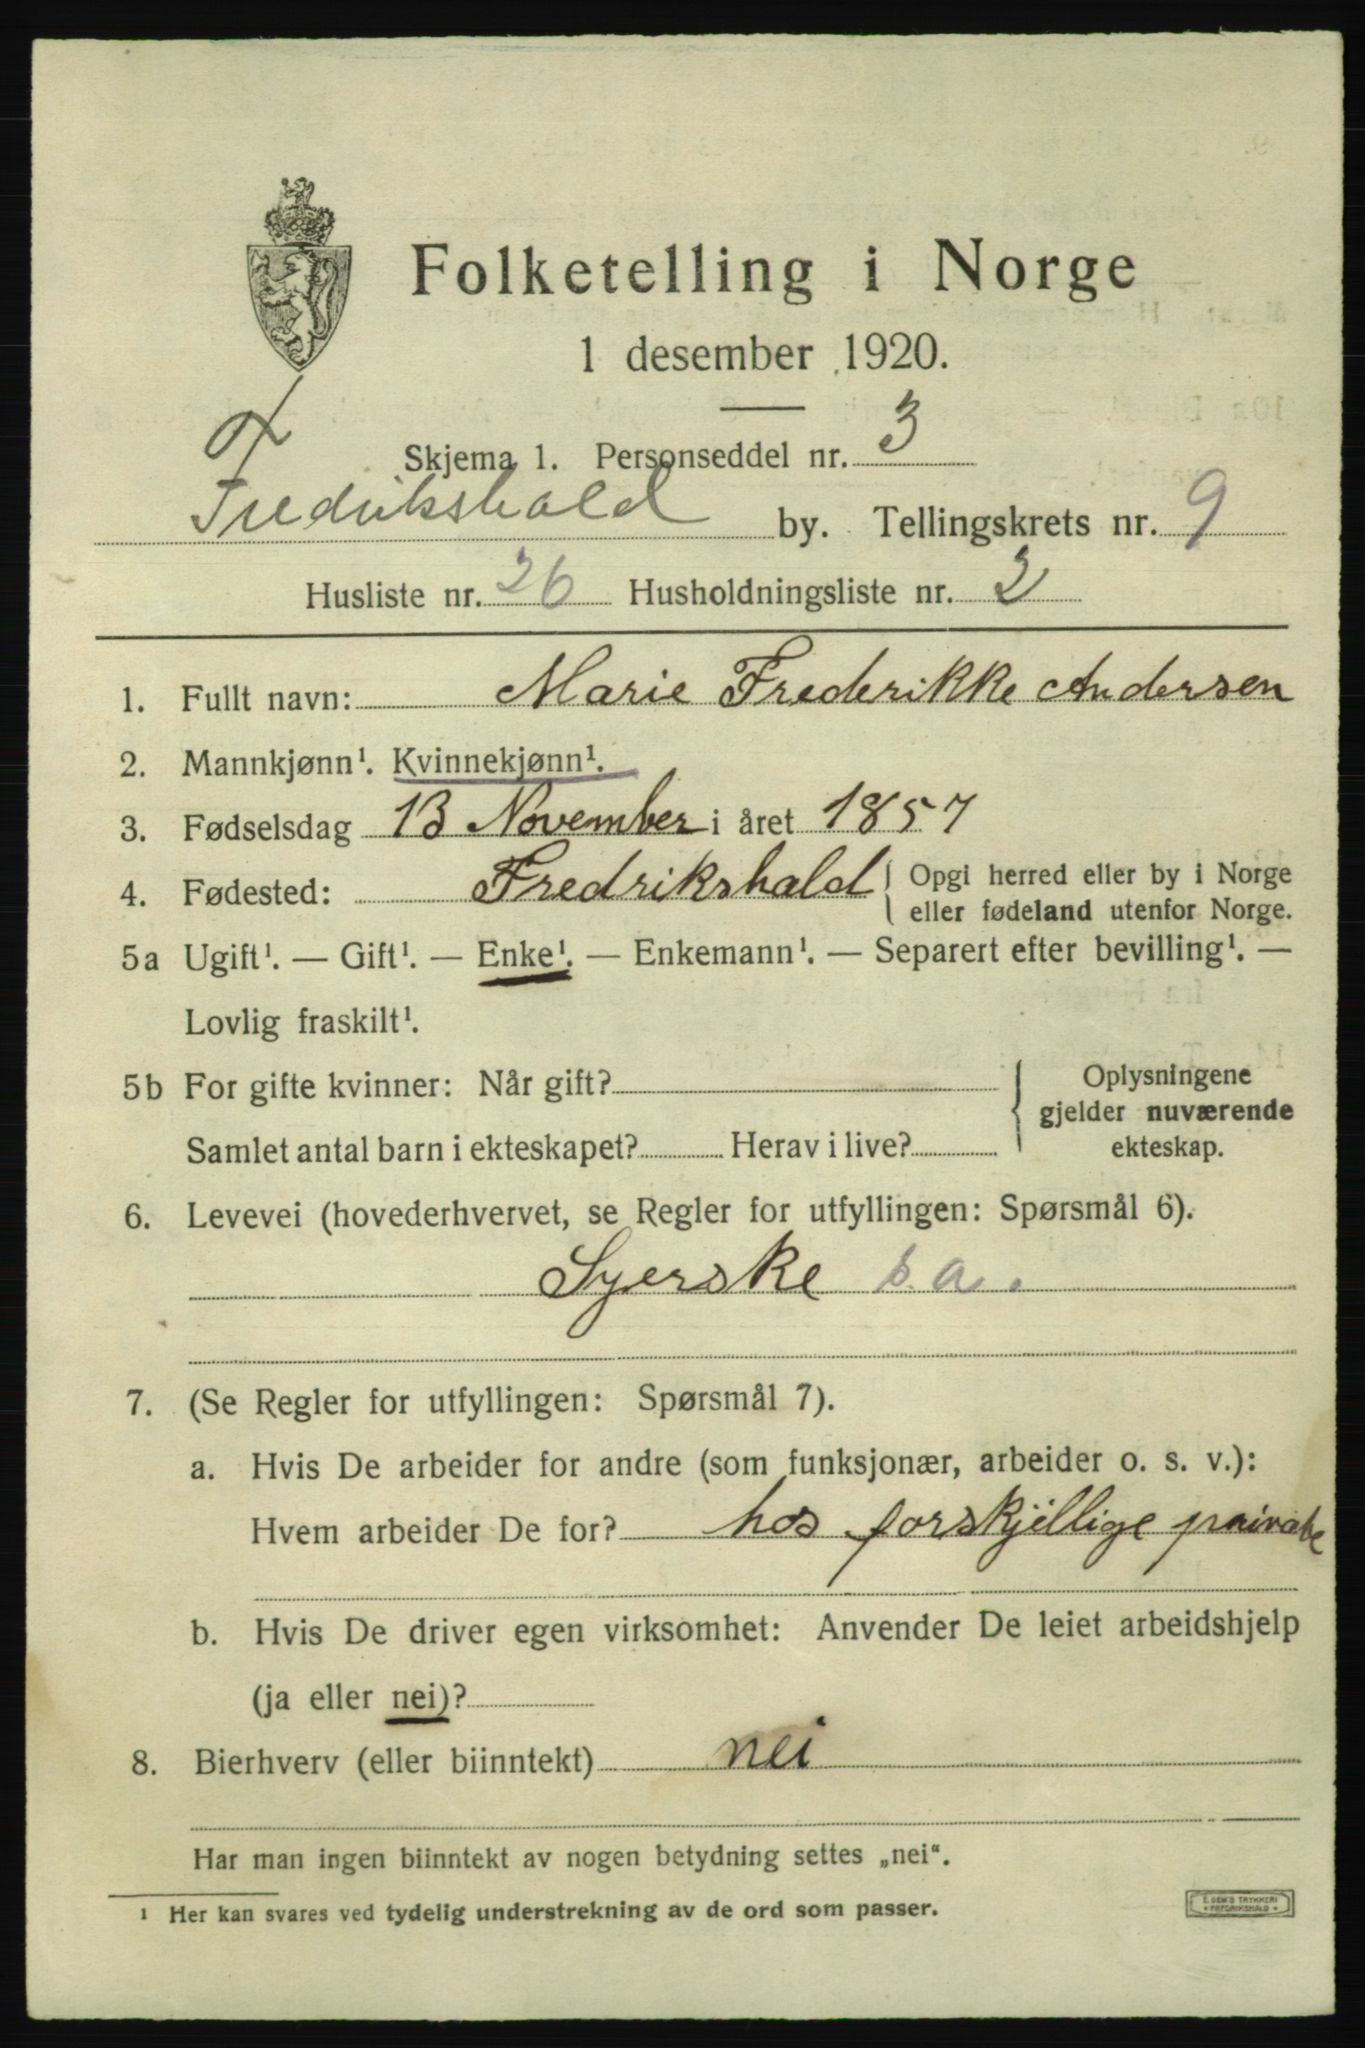 Folketelling i Norge
1 desember 1920.
Skjema 1. Personseddel nr. 3
Fredrikshald by. Tellingskrets nr. 9
Husliste nr. 26 Husholdningsliste nr. 2
1. Fullt navn: Marie Frederikke Andersen
2. Mannkjønn¹. Kvinnekjønn¹.
3. Fødselsdag 13 November i året 1857
4. Fødested: Fredrikshald { Opgi herred eller by i Norge
eller fødeland utenfor Norge.
5a Ugift¹. — Gift¹. — Enke¹. — Enkemann¹. — Separert efter bevilling¹. —
Lovlig fraskilt¹.
5b For gifte kvinner: Når gift? { Oplysningene
gjelder nuværende
Samlet antal barn i ekteskapet? Herav i live? ekteskap.
6. Levevei (hovederhvervet, se Regler for utfyllingen: Spørsmål 6).
Syerske s. a.
7. (Se Regler for utfyllingen: Spørsmål 7).
a. Hvis De arbeider for andre (som funksjonær, arbeider o. s. v.):
Hvem arbeider De for? hos forskjellige private
b. Hvis De driver egen virksomhet: Anvender De leiet arbeidshjelp
(ja eller nei)?
8. Bierhverv (eller biinntekt) nei
Har man ingen biinntekt av nogen betydning settes „nei“.
¹ Her kan svares ved tydelig understrekning av de ord som passer.
TRYKKERI
FREDRIKSHALD